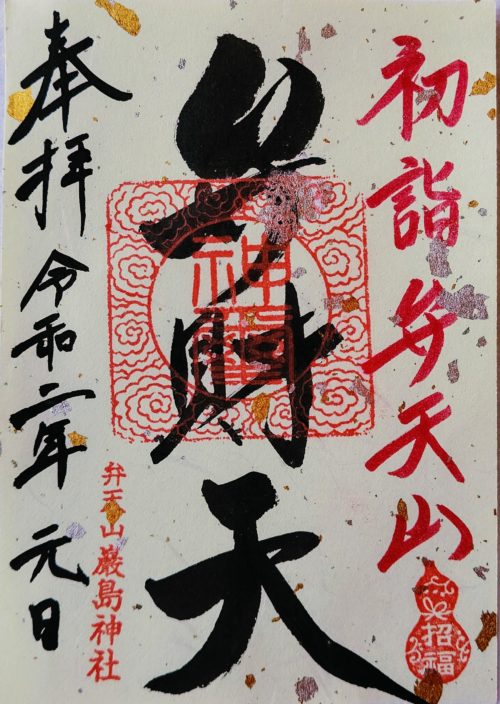 初詣弁天山
招福
弁財天
弁天山厳島神社
奉拝 令和二年 元日